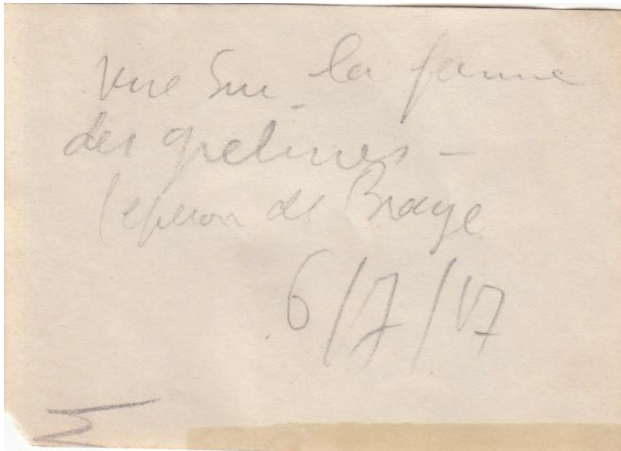 vue Sur la ferme
des grelines –
l'eperon de Braye
6/7/17